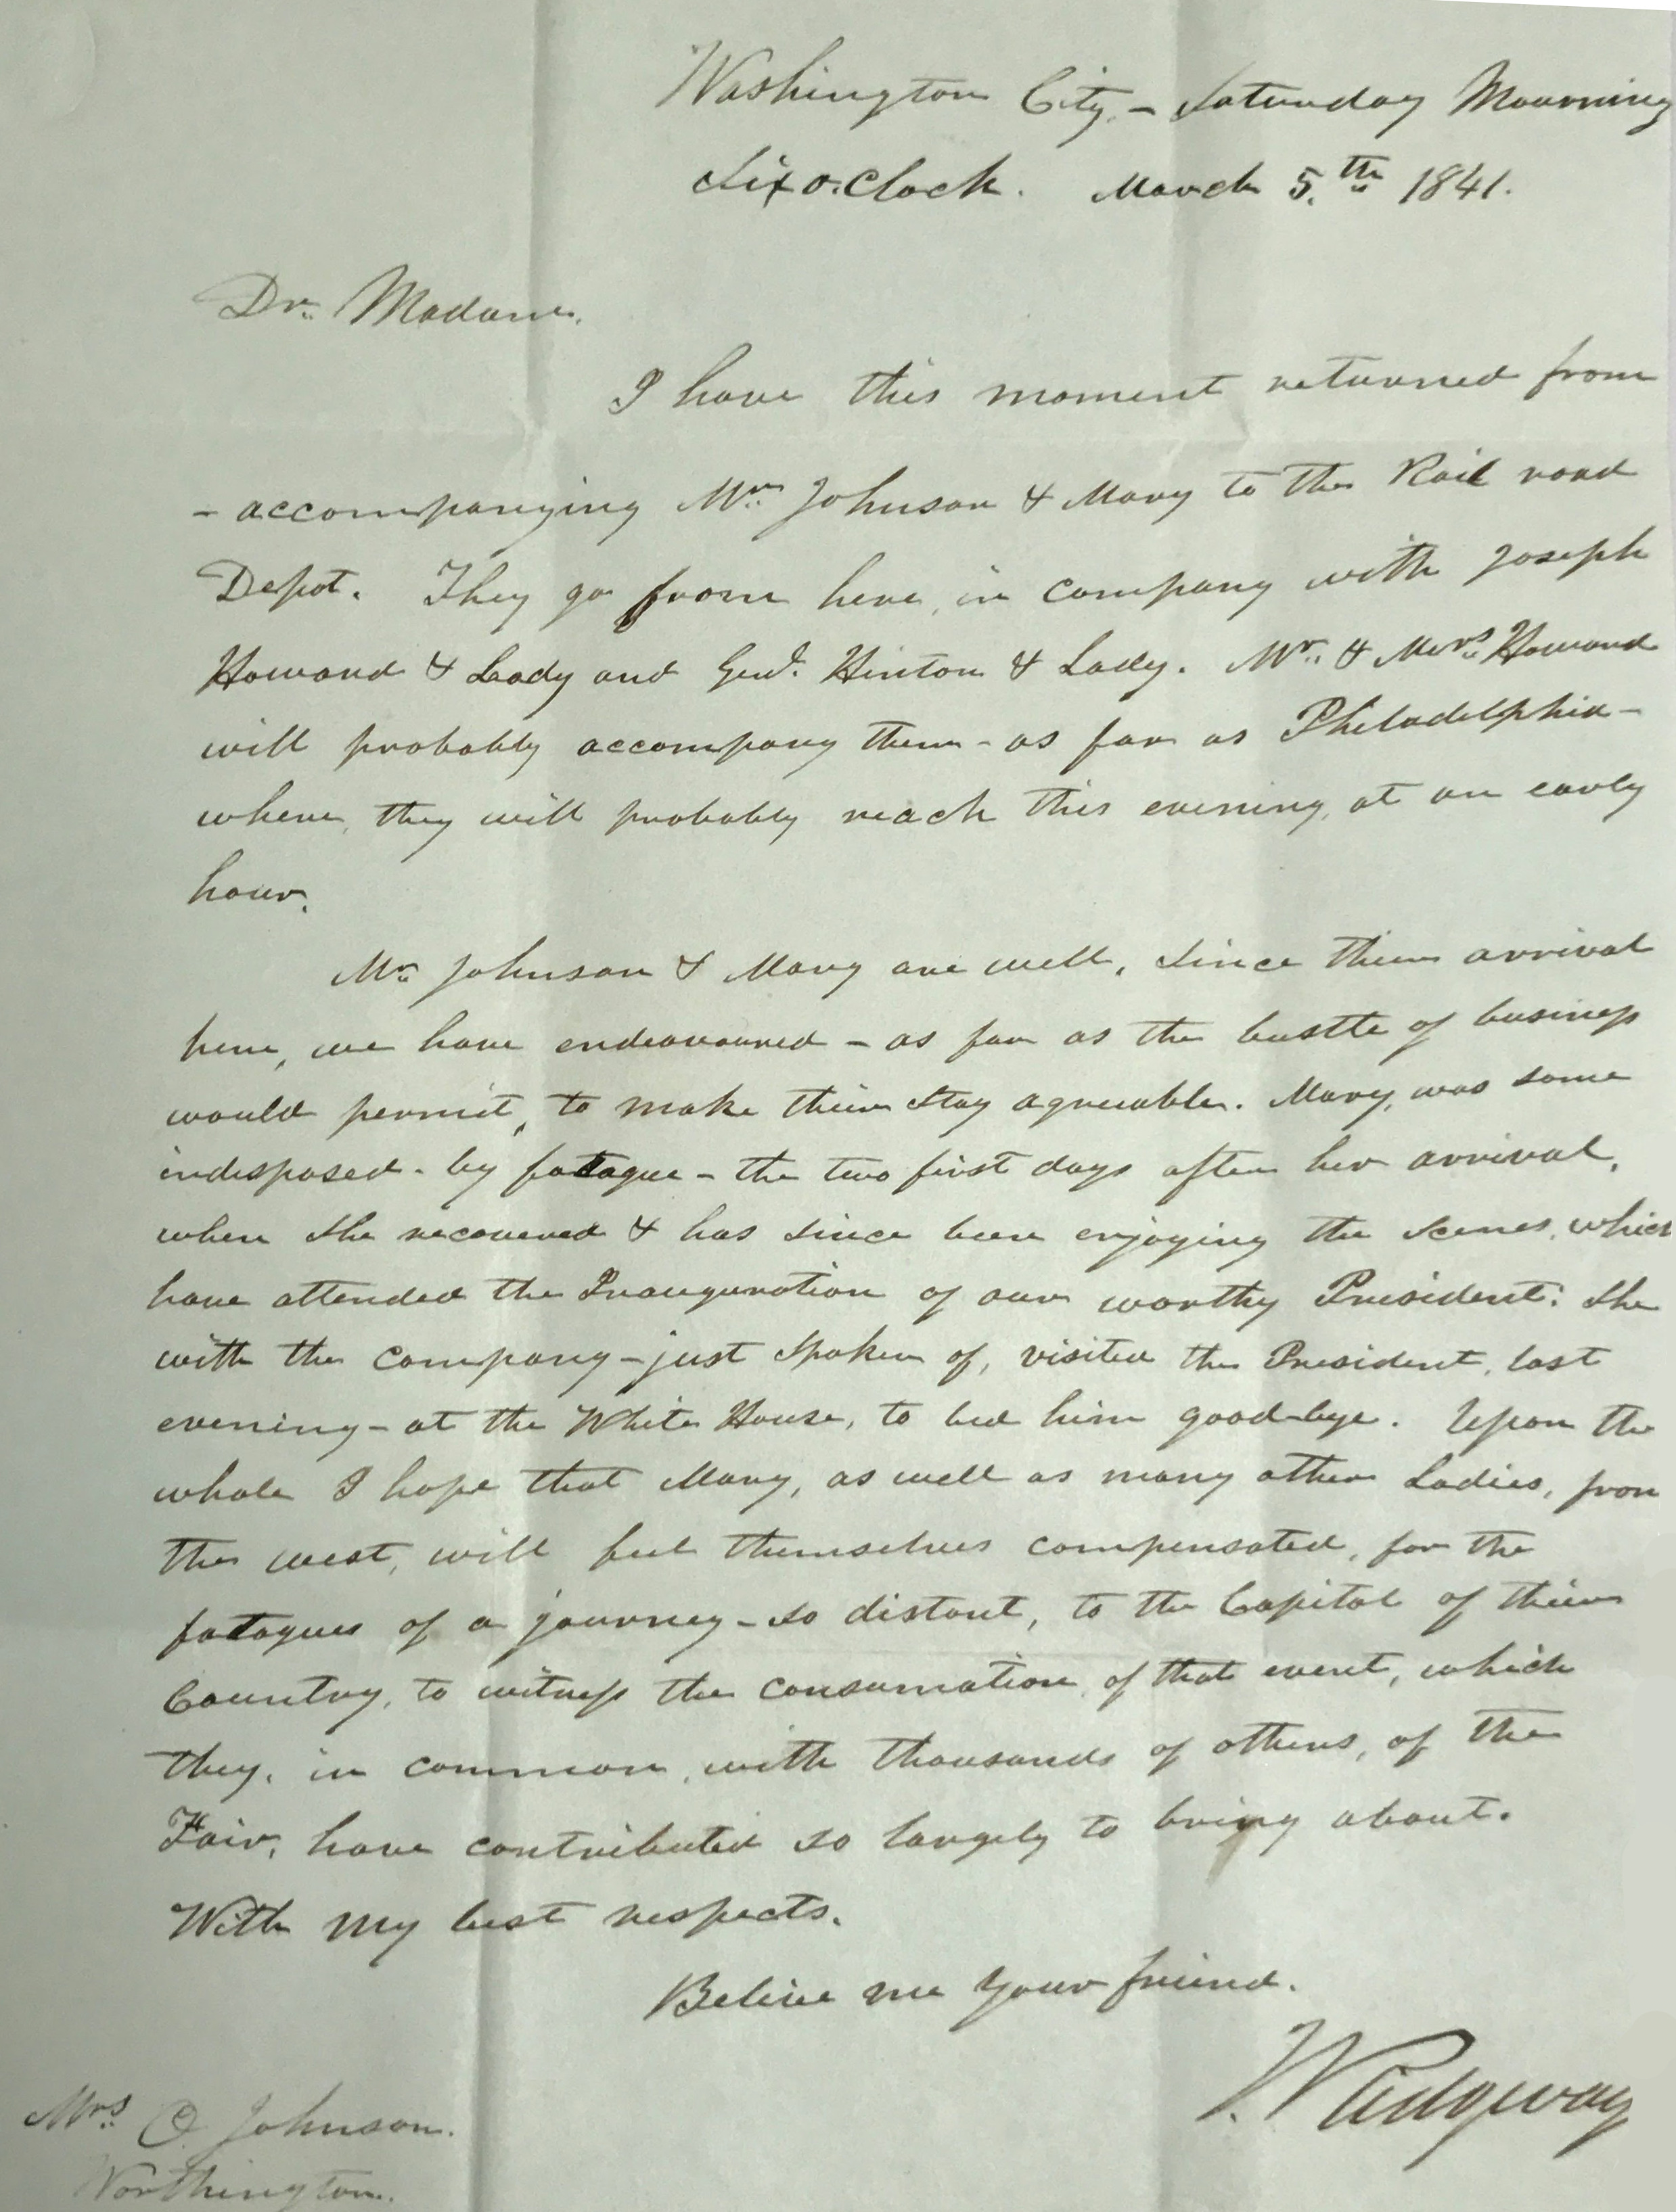 Washington City. - Saturday Mourning
Six o.Clock. March 5.th 1841.
Dr. Madam.
I have this moment returned from
- accompanying Mr. Johnson & Mary to the Rail road
Depot. They go from here, in company with Joseph
Howard & Lady and Genl. Hinton & Lady. Mr. & Mrs. Howard
will probably accompany them - as far as Philadelphia -
where, they will probably reach this evening, at an early
hour.
Mr. Johnson & Mary are well, since their arrival
here, we have endeavoured - as far as the bustle of business
would permit, to make their stay agreeable. Mary, was some
indisposed - by fatague - the two first days after her arrival,
when she recovered & has since been enjoying the scenes, which
have attended the Inauguration of our worthy President: She
with the company - just spoken of, visited the President, last
evening - at the White House, to bid him good-bye. Upon the
whole I hope that Mary, as well as many other Ladies, from
the west, will feel themselves compensated, for the
fatagues of a journey - so distant, to the Capitol of their
Country, to witness the consumation, of that event, which
they, in common, with thousands of others, of the
Fair, have contributed so largely to bring about.
With my best respects.
Belive me your friend.
J. Ridgway
Mrs. O. Johnson.
Worthington.